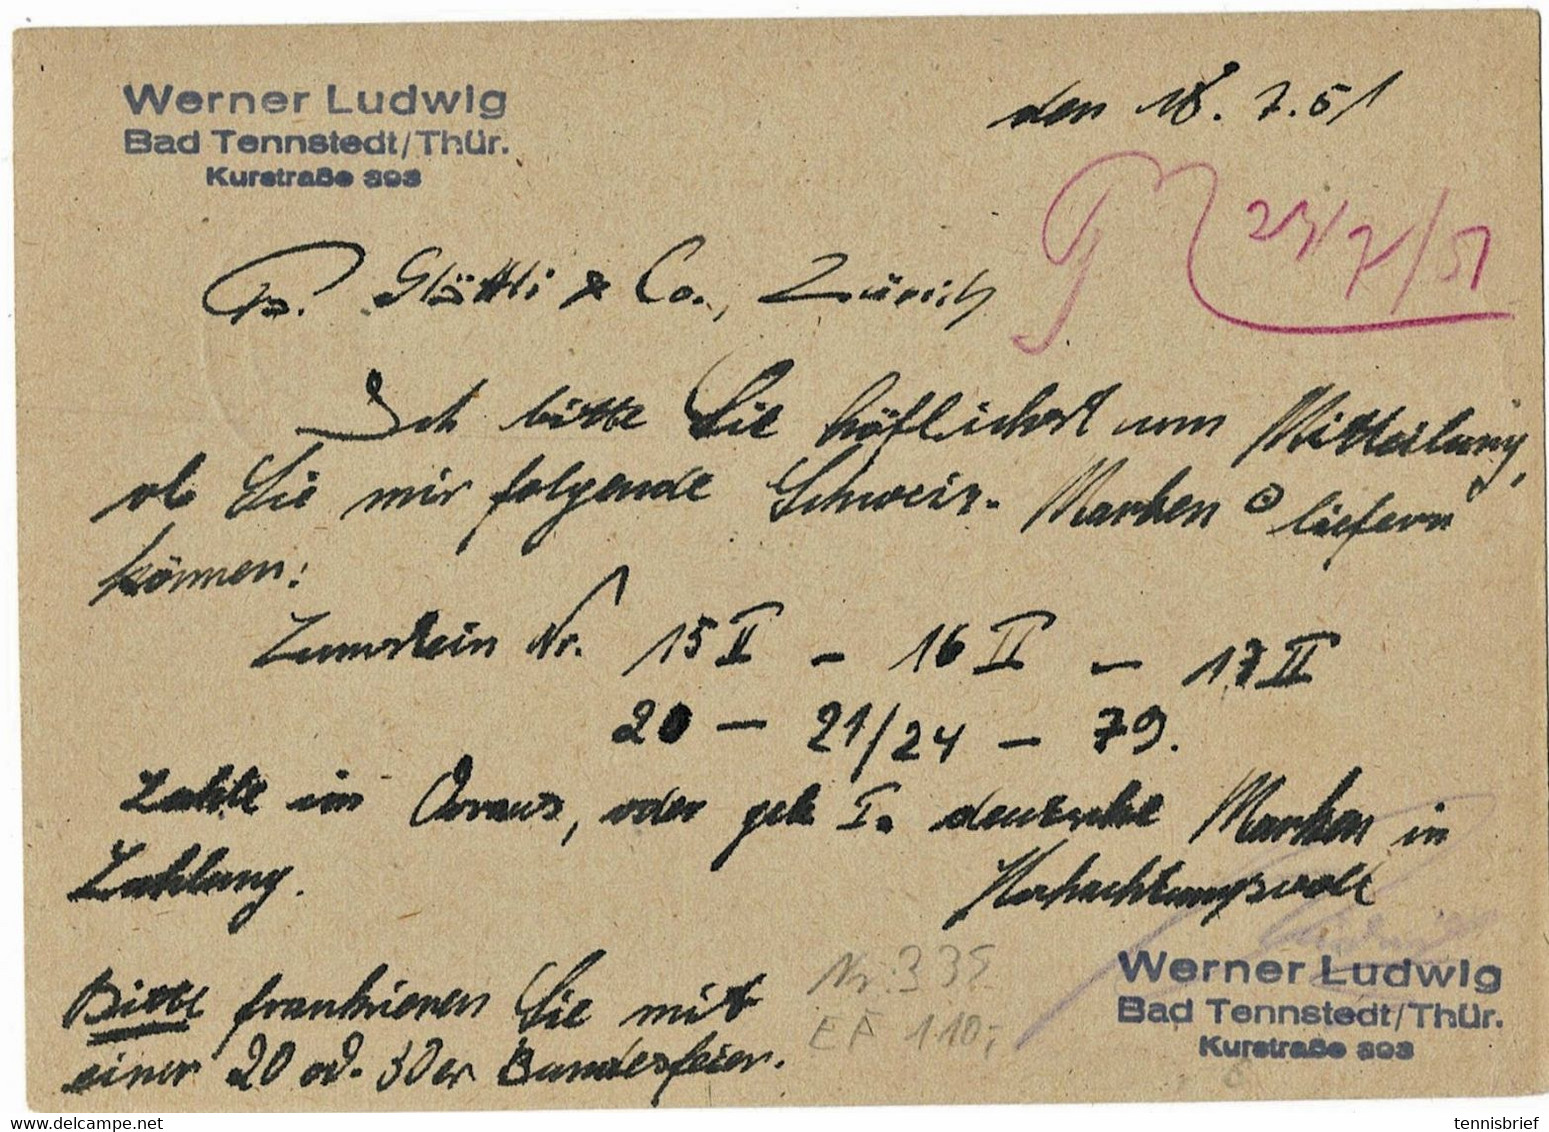 Werner Ludwig
Bad Tennstedt/Thür.
Kurstraße 393
den 18. 7. 51
24/7/51
& Co., Zürich
Ich bitte Sie höflichst um Mitteilung,
ob Sie mir folgende Schweiz. Marken ⊙ liefern
können:
Zumstein Nr. 15 II – 16 II – 17 II
20 – 21/24 – 79.
Zahle im Voraus, oder gebe I. deutsche Marken in
Zahlung.
Hochachtungsvoll
Ludwig
Werner Ludwig
Bad Tennstedt/Thür.
Kurstraße 393
Bitte frankieren Sie mit
einer 20 od. 30er Bundesfeier.
Nr. 335
EF 110,-
tennisbrief